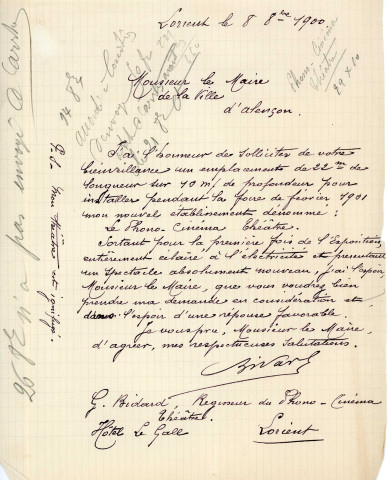 Lorient le 8 8bre 1900
Monsieur le Maire
de la Ville
d'alençon.
J'ai l'honneur de solliciter de votre
bienveillance un emplacement de 22 m de
longueur sur 10 m/ de profondeur pour
installer pendant la foire de février 1901
mon nouvel établissement dénommé :
Le Phono-Cinéma Théatre.
Sortant pour la première fois de l'Exposition,
entièrement éclairé à l'électricité et présentant
un spectacle absolument nouveau, j'ai l'espoir,
Monsieur le Maire, que vous voudrez bien
prendre ma demande en considération et
dans l'espoir d'une réponse favorable.
Je vous prie, Monsieur le Maire,
d'agréer, mes respectueuses salutations.
G. Bidard, Régisseur du Phono-Cinéma
Théatre.
Hôtel Le Gall
Lorient
P.S. Mon théâtre est ignifugé.
26 8bre n'a pas envoyé
Phono-Cinéma
Théatre
29 x 10